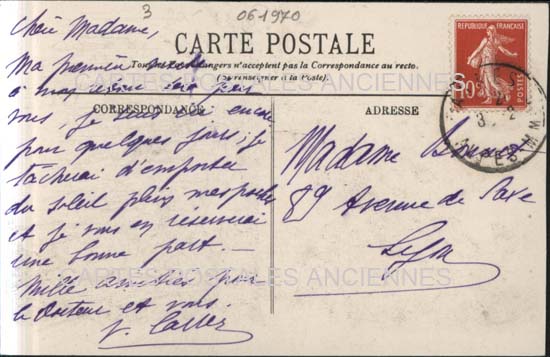 3
06-1970
Chère Madame,
RÉPUBLIQUE FRANÇAISE
CARTE POSTALE
Tous les pays étrangers n'acceptent pas la Correspondance au recto.
(Se renseigner à la Poste).
CORRESPONDANCE
ADRESSE
Ma première
à mon retour sera pour
vous, je suis ici encore
pour quelques jours; je
tâcherai d'emporter
du soleil plein mes poches
et je vous en réserverai
une bonne part. —
Mille amitiés pour
le Docteur et vous.
Madame
89 Avenue de Saxe
Lyon
CARTES POSTALES ANCIENNES
CARTES POSTALES ANCIENNES